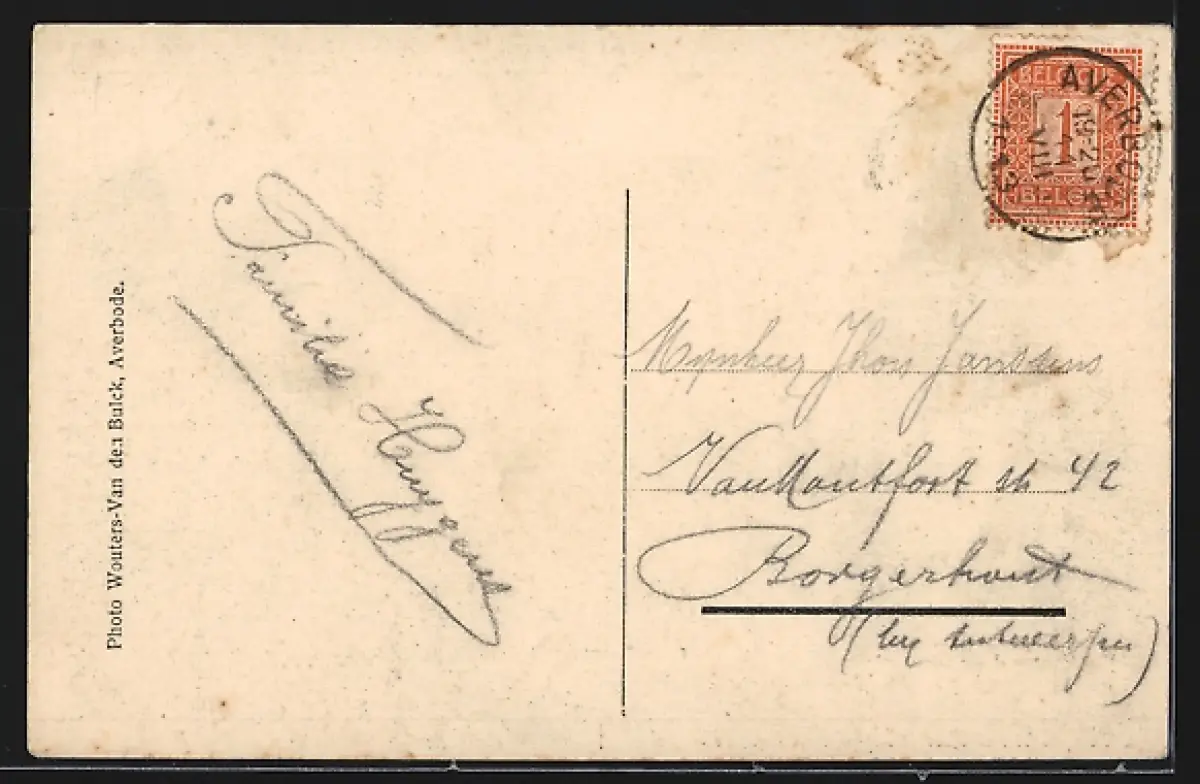 BELGIQUE
1
BELGIË
AVERBODE
VIII
Familie Huygens
Photo Wouters-Van den Bulck, Averbode.
Mynheer Jhon Janssens
VanMontfort str 42
Borgerhout
(by Antwerpen)